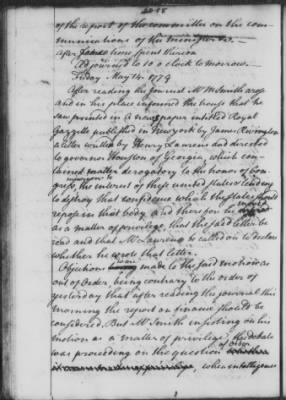 of the report of the committee on the com-
munications of the minister
After some time spent thereon
Adjourned to 10 o Clock to morrow.
Friday May 14. 1779
After reading the journal Mr M Smith arose
and in his place informed the house that he
saw printed in a news paper entitled Royal
Gazette published in New york by James Rivington
a letter written by Henry Laurens and directed
to governor Houston of Georgia, which con-
tained matter derogatory to the honor of Con-
gress injurious to the interest of these united States & tending
to destroy that confidence which the states should
repose in that body, and therefore he moved
as a matter of privilege, that the said letter be
read and that Mr Laurens be called on to declare
whether he wrote that letter.
Objections were made to the said motion as
out of Order, being contrary to the order of
yesterday that after reading the journal this
morning the report on finance should be
considered. But Mr Smith insisting on his
motion as a matter of privilege, the debate
was proceeding on the question of Order
when intelligence